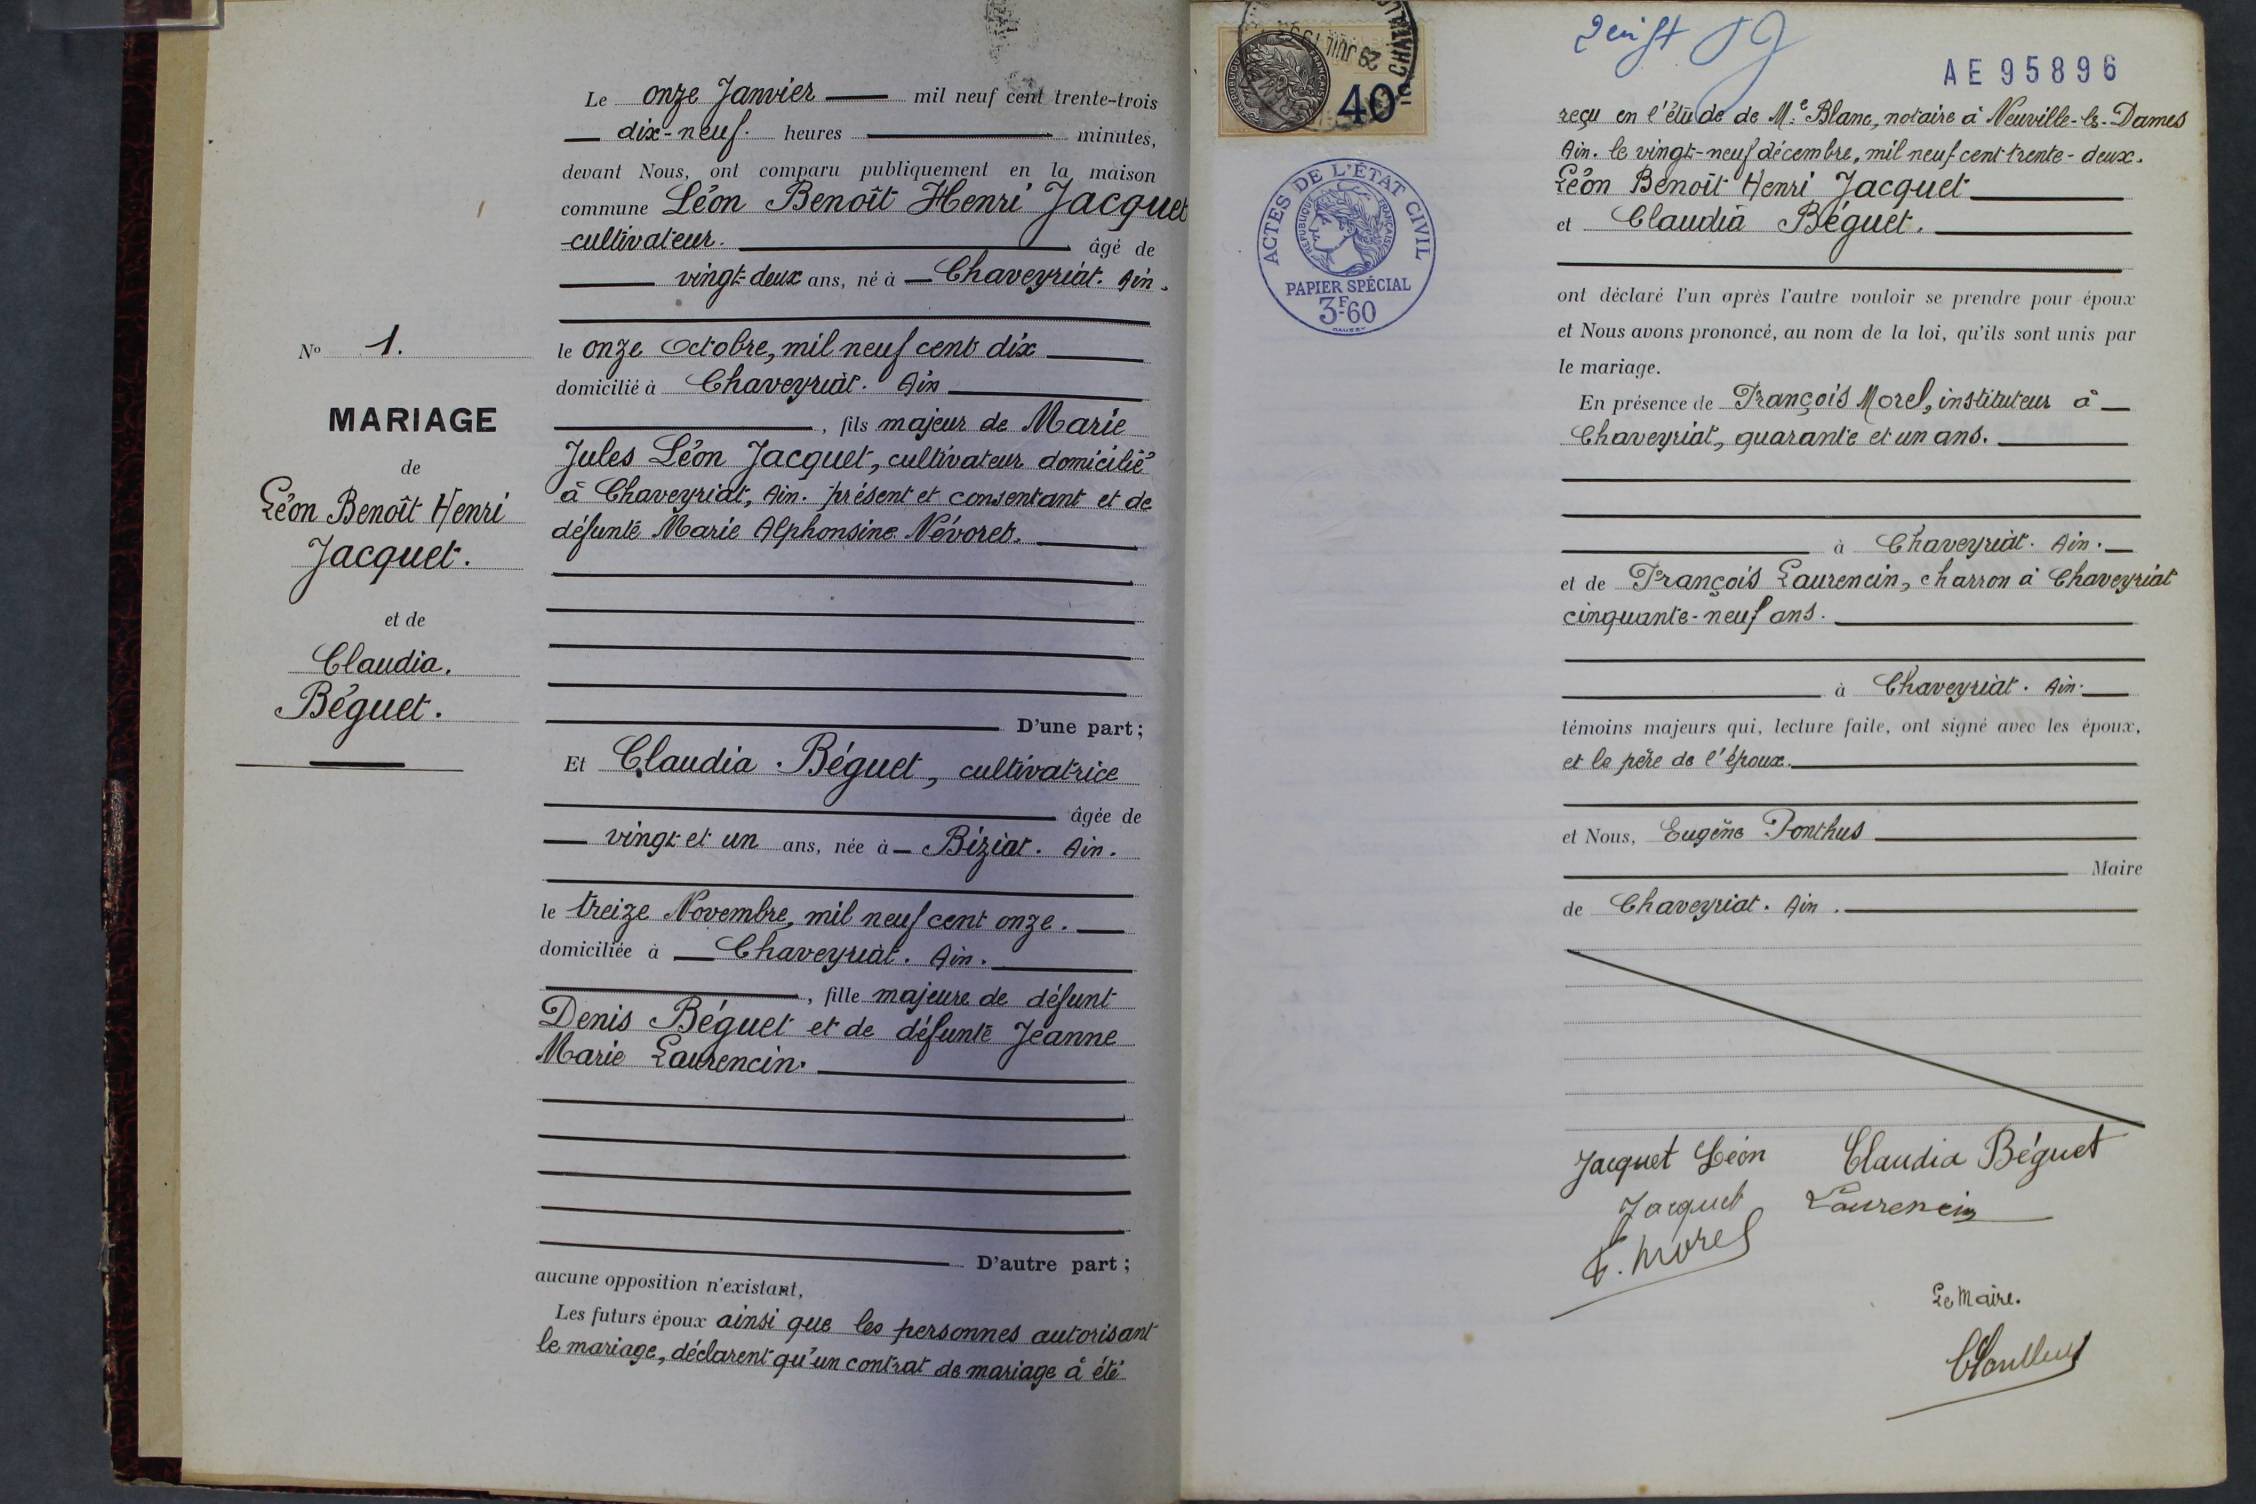 Le onze Janvier mil neuf cent trente-trois
dix-neuf. heures minutes,
devant Nous, ont comparu publiquement en la maison
commune Léon Benoît Henri Jacquet
cultivateur. âgé de
vingt-deux ans, né à Chaveyriat. Ain.
le onze Octobre, mil neuf cent dix
domicilié à Chaveyriat. Ain
, fils majeur de Marie
Jules Léon Jacquet, cultivateur domicilié
à Chaveyriat, Ain. présent et consentant et de
défunte Marie Alphonsine Névoret.
D'une part;
Et Claudia Béguet, cultivatrice
âgée de
vingt et un ans, née à Biziat. Ain.
le treize Novembre, mil neuf cent onze.
domiciliée à Chaveyriat. Ain.
, fille majeure de défunt
Denis Béguet et de défunte Jeanne
Marie Laurencin.
D'autre part;
aucune opposition n'existant,
Les futurs époux ainsi que les personnes autorisant
le mariage, déclarent qu'un contrat de mariage à été
No 1.
MARIAGE
de
Léon Benoît Henri
Jacquet.
et de
Claudia.
Béguet.
29 JUIL
40
ACTES DE L'ÉTAT CIVIL
RÉPUBLIQUE FRANÇAISE
PAPIER SPÉCIAL
3F60
AE95896
reçu en l'étude de Me Blanc, notaire à Neuville-ls-Dames
Ain. le vingt-neuf décembre, mil neuf cent trente-deux.
Léon Benoît Henri Jacquet
et Claudia Béguet.
ont déclaré l'un après l'autre vouloir se prendre pour époux
et Nous avons prononcé, au nom de la loi, qu'ils sont unis par
le mariage.
En présence de François Morel, instituteur à
Chaveyriat, quarante et un ans.
à Chaveyriat. Ain.
et de François Laurencin, charron à Chaveyriat
cinquante-neuf ans.
à Chaveyriat. Ain.
témoins majeurs qui, lecture faite, ont signé avec les époux,
et le père de l'époux.
et Nous, Eugène Ponthus
Maire
de Chaveyriat. Ain.
Jacquet Léon Claudia Béguet
Jacquet Laurencin
F. Morel
Le Maire.